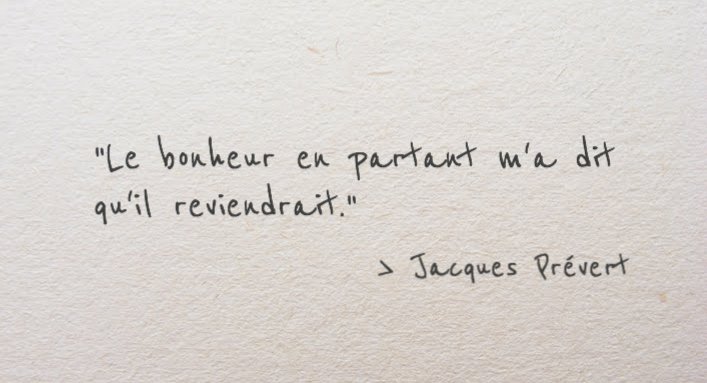 "Le bonheur en partant m'a dit
qu'il reviendrait."
> Jacques Prévert